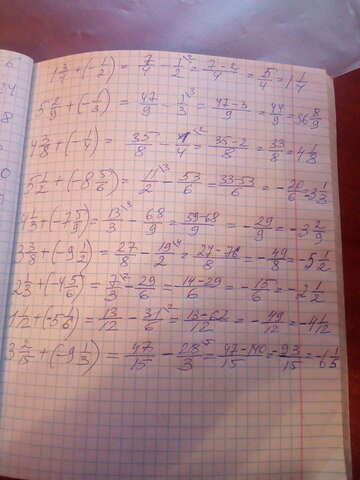 1 3/4 + (-1/2) = 7/4 - 1/2 = 7-2/4 = 5/4 = 1 1/4
5 2/9 + (-1/3) = 47/9 - 1/3 = 47-3/9 = 44/9 = 8/9
4 3/8 + (-1/4) = 35/8 - 1/4 = 35-2/8 = 33/8 = 4 1/8
5 1/2 + (-8 5/6) = 11/2 - 53/6 = 33-53/6 = -20/6 = -3 1/3
4 1/3 + (-7 5/9) = 13/3 - 68/9 = 39-68/9 = -29/9 = -3 2/9
3 3/8 + (-9 1/2) = 27/8 - 19/2 = 27-76/8 = -49/8 = -5 1/2
2 1/3 + (-4 5/6) = 7/3 - 29/6 = 14-29/6 = -15/6 = -2 1/2
1 1/12 + (-5 1/6) = 13/12 - 31/6 = 13-62/12 = -49/12 = -4 1/12
3 2/15 + (-9 1/3) = 47/15 - 28/3 = 47-140/15 = -93/15 = -6 1/5